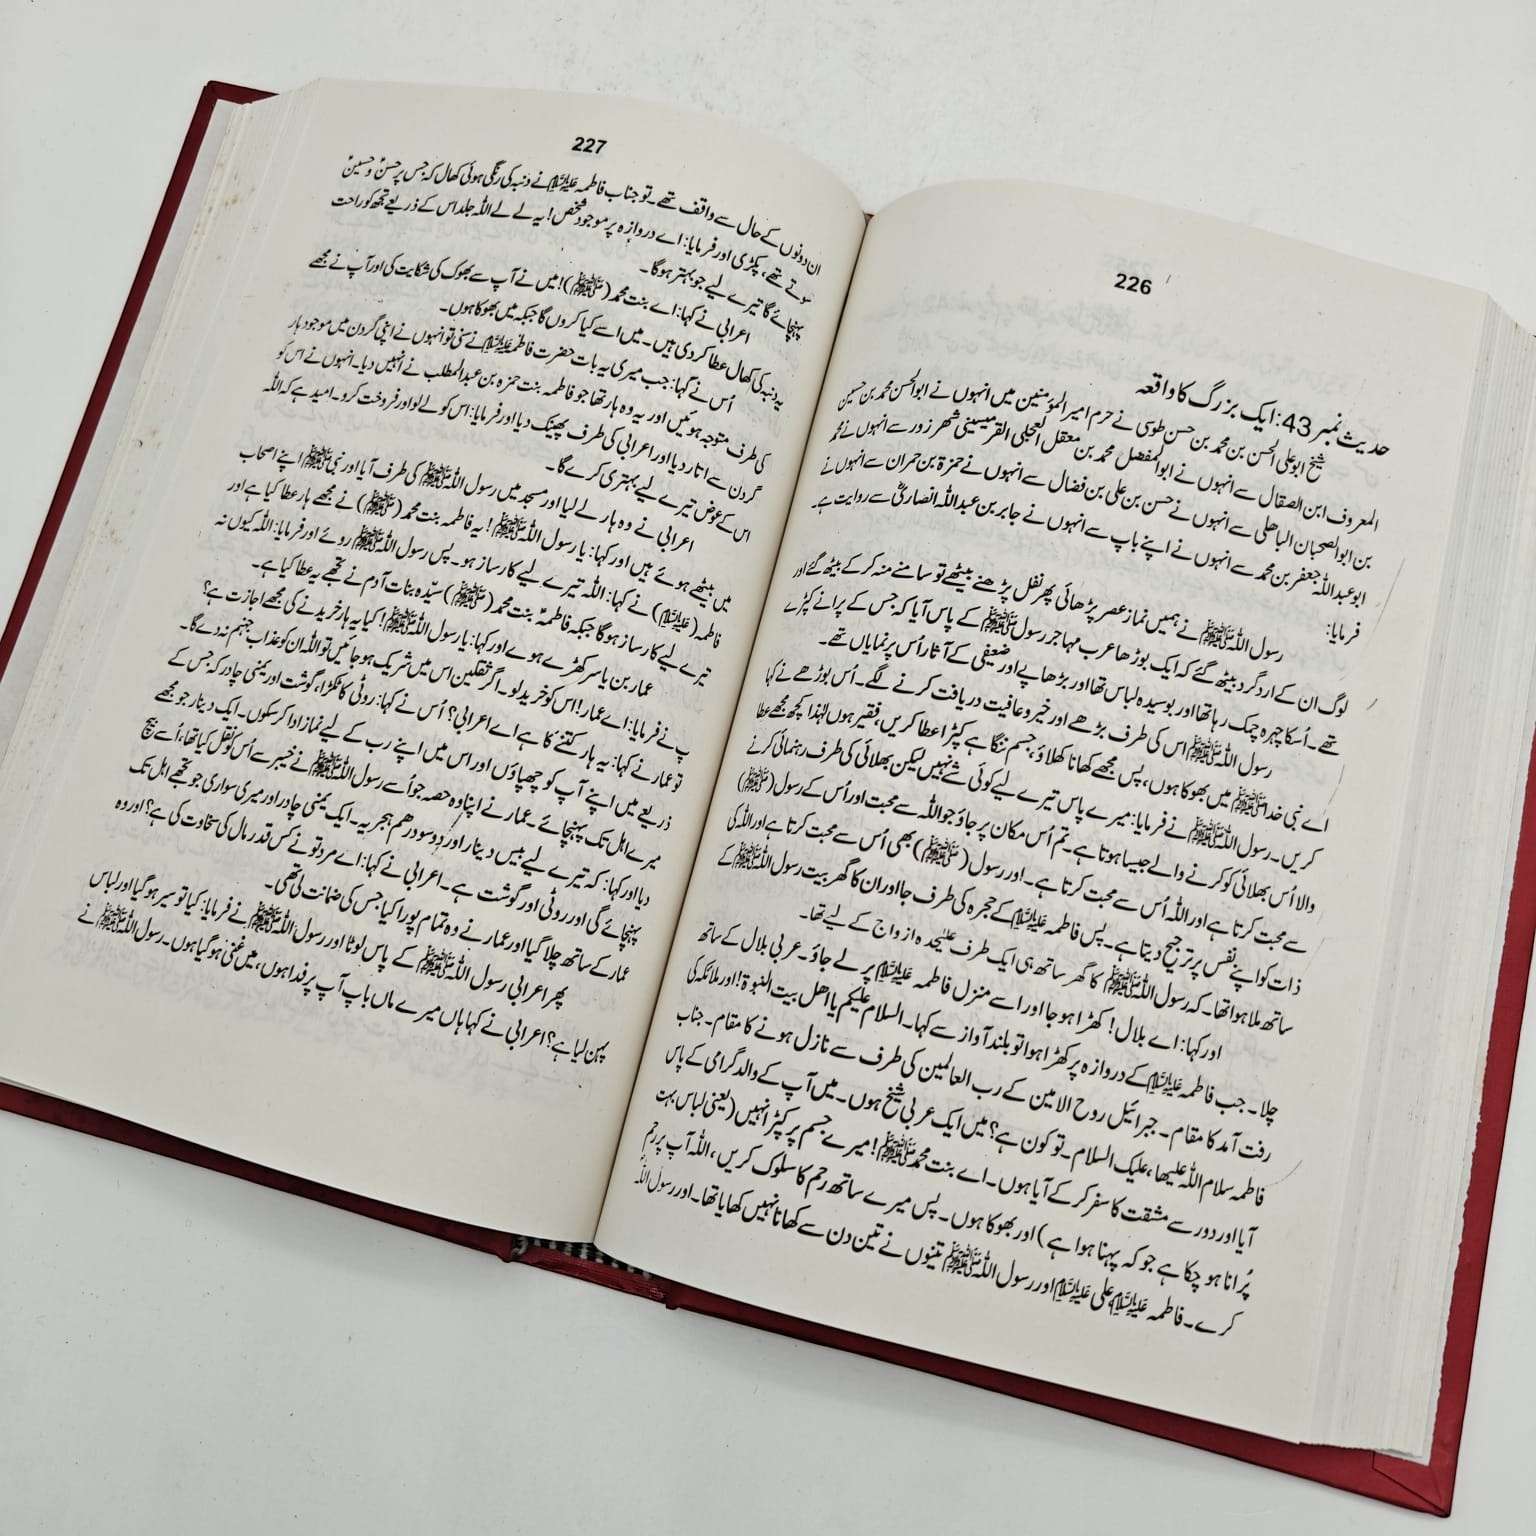 226
حدیث نمبر 43: ایک بزرگ کا واقعہ
شیخ ابو علی الحسن بن محمد بن حسن طوسی نے حرم امیر المؤمنین میں انہوں نے ابوالحسن محمد بن حسین
المعروف ابن الصقال سے انہوں نے ابوالمفضل محمد بن معقل العجلی القرمیسینی شھر زور سے انہوں نے محمد
بن ابوالصحبان الباھلی سے انہوں نے حسن بن علی بن فضال سے انہوں نے حمزة بن حمران سے انہوں نے
ابوعبداللہ جعفر بن محمد سے انہوں نے اپنے باپ سے انہوں نے جابر بن عبداللہ انصاریؓ سے روایت ہے۔
فرمایا:
رسول اللہ ﷺ نے ہمیں نماز عصر پڑھائی پھر نفل پڑھنے بیٹھے تو سامنے منہ کر کے بیٹھ گئے اور
لوگ ان کے ارد گرد بیٹھ گئے کہ ایک بوڑھا عرب مہاجر رسول ﷺ کے پاس آیا کہ جس کے پرانے کپڑے
تھے۔ اُسکا چہرہ چمک رہا تھا اور بوسیدہ لباس تھا اور بڑھاپے اور ضعیفی کے آثار اُس پر نمایاں تھے۔
رسول اللہ ﷺ اس کی طرف بڑھے اور خیر و عافیت دریافت کرنے لگے۔ اُس بوڑھے نے کہا
اے نبی خدا ﷺ میں بھوکا ہوں، پس مجھے کھانا کھلاؤ، جسم ننگا ہے کپڑا عطا کریں، فقیر ہوں لہٰذا کچھ مجھے عطا
کریں۔ رسول اللہ ﷺ نے فرمایا: میرے پاس تیرے لیے کوئی شے نہیں لیکن بھلائی کی طرف رہنمائی کرنے
والا اُس بھلائی کو کرنے والے جیسا ہوتا ہے۔ تم اُس مکان پر جاؤ جو اللہ سے محبت اور اُس کے رسول (ﷺ)
سے محبت کرتا ہے اور اللہ اُس سے محبت کرتا ہے۔ اور رسول (ﷺ) بھی اُس سے محبت کرتا ہے اور اللہ کی
ذات کو اپنے نفس پر ترجیح دیتا ہے۔ پس فاطمہ علیہا السلام کے حجرہ کی طرف جا اور ان کا گھر بیت رسول اللہ ﷺ کے
ساتھ ملا ہوا تھا۔ کہ رسول اللہ ﷺ کا گھر ساتھ ہی ایک طرف علیحدہ ازواج کے لیے تھا۔
اور کہا: اے بلال! کھڑا ہو جا اور اسے منزل فاطمہ علیہا السلام پر لے جاؤ۔ عربی بلال کے ساتھ
چلا۔ جب فاطمہ علیہا السلام کے دروازہ پر کھڑا ہوا تو بلند آواز سے کہا۔ السلام علیکم یا اھل بیت النبوة! اور ملائکہ کی
رفت آمد کا مقام۔ جبرائیل روح الامین کے رب العالمین کی طرف سے نازل ہونے کا مقام۔ جناب
فاطمہ سلام اللہ علیھا، علیک السلام۔ تو کون ہے؟ میں ایک عربی شیخ ہوں۔ میں آپ کے والد گرامی کے پاس
آیا اور دور سے مشقت کا سفر کر کے آیا ہوں۔ اے بنت محمد ﷺ! میرے جسم پر کپڑا نہیں (یعنی لباس بہت
پُرانا ہو چکا ہے جو کہ پہنا ہوا ہے) اور بھوکا ہوں۔ پس میرے ساتھ رحم کا سلوک کریں، اللہ آپ پر رحم
کرے۔ فاطمہ علیہا السلام علی علیہ السلام اور رسول اللہ ﷺ تینوں نے تین دن سے کھانا نہیں کھایا تھا۔ اور رسول اللہ
227
ان دونوں کے حال سے واقف تھے۔ تو جناب فاطمہ علیہا السلام نے دنبہ کی رنگی ہوئی کھال کہ جس پر حسنؑ و حسینؑ
سوتے تھے، پکڑی اور فرمایا: اے دروازہ پر موجود شخص! یہ لے لے اللہ جلد اس کے ذریعے تجھ کو راحت
پہنچائے گا تیرے لیے جو بہتر ہوگا۔
اعرابی نے کہا: اے بنت محمد (ﷺ)! میں نے آپ سے بھوک کی شکایت کی اور آپ نے مجھے
یہ دنبہ کی کھال عطا کر دی ہیں۔ میں اسے کیا کروں گا جبکہ میں بھوکا ہوں۔
اُس نے کہا: جب میری یہ بات حضرت فاطمہ علیہا السلام نے سنی تو انہوں نے اپنی گردن میں موجود ہار
کی طرف متوجہ ہوئیں اور یہ وہ ہار تھا جو فاطمہ بنت حمزہ بن عبدالمطلب نے انہیں دیا۔ انہوں نے اس کو
گردن سے اتار دیا اور اعرابی کی طرف پھینک دیا اور فرمایا: اس کو لے لو اور فروخت کرو۔ امید ہے کہ اللہ
اس کے عوض تیرے لیے بہتری کرے گا۔
اعرابی نے وہ ہار لے لیا اور مسجد میں رسول اللہ ﷺ کی طرف آیا اور نبی ﷺ اپنے اصحاب
میں بیٹھے ہوئے ہیں اور کہا: یا رسول اللہ ﷺ! یہ فاطمہ بنت محمد (ﷺ) نے مجھے ہار عطا کیا ہے اور
فاطمہ (علیہا السلام) نے کہا: اللہ تیرے لیے کارساز ہو۔ پس رسول اللہ ﷺ روئے اور فرمایا: اللہ کیوں نہ
تیرے لیے کارساز ہوگا جبکہ فاطمہؑ بنت محمد (ﷺ) سیّدہ بنات آدم نے تجھے یہ عطا کیا ہے۔
عمار بن یاسر کھڑے ہوے اور کہا: یا رسول اللہ ﷺ! کیا یہ ہار خریدنے کی مجھے اجازت ہے؟
پ نے فرمایا: اے عمار! اس کو خرید لو۔ اگر ثقلین اس میں شریک ہو جائیں تو اللہ ان کو عذاب جہنم نہ دے گا۔
تو عمار نے کہا: یہ ہار کتنے کا ہے اے اعرابی؟ اُس نے کہا: روٹی کا ٹکڑا، گوشت اور یمنی چادر کہ جس کے
ذریعے میں اپنے آپ کو چھپاؤں اور اس میں اپنے رب کے لیے نماز ادا کر سکوں۔ ایک دینار جو مجھے
میرے اہل تک پہنچائے۔ عمار نے اپنا وہ حصہ جو اُسے رسول اللہ ﷺ نے خیبر سے اُس کو نقل کیا تھا، اُسے بیچ
دیا اور کہا: کہ تیرے لیے بیس دینار اور دو سو درھم ہجریہ۔ ایک یمنی چادر اور میری سواری جو تجھے اہل تک
پہنچائے گی اور روٹی اور گوشت ہے۔ اعرابی نے کہا: اے مرد تو نے کس قدر مال کی سخاوت کی ہے؟ اور وہ
عمار کے ساتھ چلا گیا اور عمار نے وہ تمام پورا کیا جس کی ضمانت لی تھی۔
پھر اعرابی رسول اللہ ﷺ کے پاس لوٹا اور رسول اللہ ﷺ نے فرمایا: کیا تو سیر ہو گیا اور لباس
پہن لیا ہے؟ اعرابی نے کہا ہاں میرے ماں باپ آپ پر فدا ہوں، میں غنی ہو گیا ہوں۔ رسول اللہ ﷺ نے